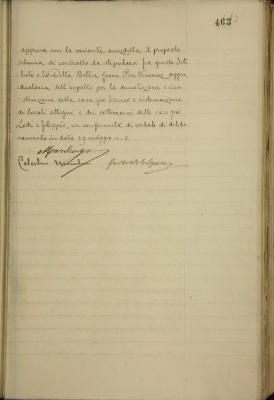 463
approva con la variante anzidetta il proposto
schema di contratto da stipularsi fra questo Isti
tuto e la Ditta Bellia Giov. Pier Vincenzo, aggiu
dicataria dell'appalto per la demolizione e rico
struzione della casa già e sistemazione
di locali attigui e dei sotterranei delle case già
Lodi e Filippis, in conformità di verbale di delibe
ramento in data 29 maggio u. s.